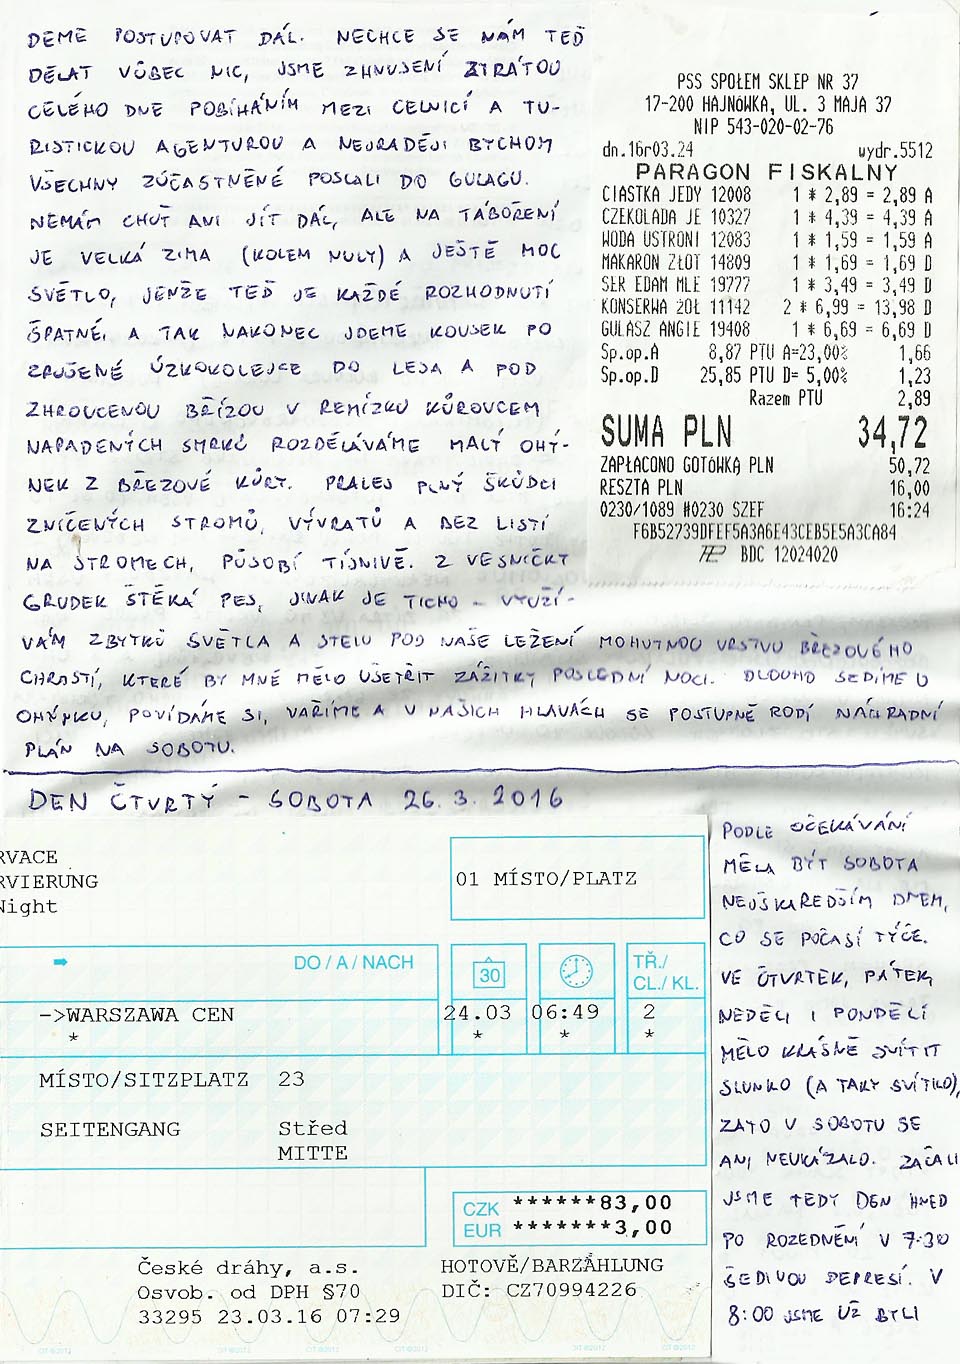 DEME POSTUPOVAT DÁL. NECHCE SE NÁM TEĎ
DĚLAT VŮBEC NIC, JSME ZHNUSENÍ ZTRÁTOU
CELÉHO DNE POBÍHÁNÍM MEZI CELNICÍ A TU-
RISTICKOU AGENTUROU A NEJRADĚJI BYCHOM
VŠECHNY ZÚČASTNĚNÉ POSLALI DO GULAGU.
NEMÁM CHUŤ ANI JÍT DÁL, ALE NA TÁBOŘENÍ
JE VELKÁ ZIMA (KOLEM NULY) A JEŠTĚ MOC
SVĚTLO, JENŽE TEĎ JE KAŽDÉ ROZHODNUTÍ
ŠPATNÉ, A TAK NAKONEC JDEME KOUSEK PO
ZRUŠENÉ ÚZKOKOLEJCE DO LESA A POD
ZHROUCENOU BŘÍZOU V REMÍZKU KŮROVCEM
NAPADENÝCH SMRKŮ ROZDĚLÁVÁME MALÝ OHÝ-
NEK Z BŘEZOVÉ KŮRY. PRALES PLNÝ ŠKŮDCI
ZNIČENÝCH STROMŮ, VÝVRATŮ A BEZ LISTÍ
NA STROMECH, PŮSOBÍ TÍSNIVĚ. Z VESNIČKY
GRUDEK ŠTĚKÁ PES, JINAK JE TICHO - VYUŽÍ-
VÁM ZBYTKŮ SVĚTLA A STELU POD NAŠE LEŽENÍ MOHUTNOU VRSTVU BŘEZOVÉHO
CHRASTÍ, KTERÉ BY MNĚ MĚLO UŠETŘIT ZÁŽITKY POSLEDNÍ NOCI. DLOUHO SEDÍME U
OHÝNKU, POVÍDÁME SI, VAŘÍME A V NAŠICH HLAVÁCH SE POSTUPNĚ RODÍ NÁHRADNÍ
PLÁN NA SOBOTU.
PSS SPOŁEM SKLEP NR 37
17-200 HAJNÓWKA, UL. 3 MAJA 37
NIP 543-020-02-76
dn.16r03.24 wydr.5512
PARAGON FISKALNY
CIASTKA JEDY 12008 1 * 2,89 = 2,89 A
CZEKOLADA JE 10327 1 * 4,39 = 4,39 A
WODA USTRONI 12083 1 * 1,59 = 1,59 A
MAKARON ZŁOT 14809 1 * 1,69 = 1,69 D
SER EDAM MLE 19777 1 * 3,49 = 3,49 D
KONSERWA ŻOŁ 11142 2 * 6,99 = 13,98 D
GULASZ ANGIE 19408 1 * 6,69 = 6,69 D
Sp.op.A 8,87 PTU A=23,00% 1,66
Sp.op.D 25,85 PTU D= 5,00% 1,23
Razem PTU 2,89
SUMA PLN 34,72
ZAPŁACONO GOTÓWKĄ PLN 50,72
RESZTA PLN 16,00
0230/1089 #0230 SZEF 16:24
F6B52739DFEF5A3A6E43CEB5E5A3CA84
BDC 12024020
DEN ČTVRTÝ - SOBOTA 26.3.2016
RVACE
RVIERUNG
Night
01 MÍSTO/PLATZ
DO / A / NACH
30
TŘ./
CL./ KL.
->WARSZAWA CEN 24.03 06:49 2
* * * *
MÍSTO/SITZPLATZ 23
SEITENGANG Střed
MITTE
CZK ******83,00
EUR *******3,00
České dráhy, a.s. HOTOVĚ/BARZAHLUNG
Osvob. od DPH §70 DIČ: CZ70994226
33295 23.03.16 07:29
PODLE OČEKÁVÁNÍ
MĚLA BÝT SOBOTA
NEJŠKAREDŠÍM DNEM,
CO SE POČASÍ TÝČE.
VE ČTVRTEK, PÁTEK,
NEDĚLI I PONDĚLÍ
MĚLO KRÁSNĚ SVÍTIT
SLUNKO (A TAKY SVÍTILO),
ZATO V SOBOTU SE
ANI NEUKÁZALO. ZAČALI
JSME TEDY DEN HNED
PO ROZEDNĚNÍ V 7:30
ŠEDIVOU DEPRESÍ. V
8:00 JSME UŽ BYLI